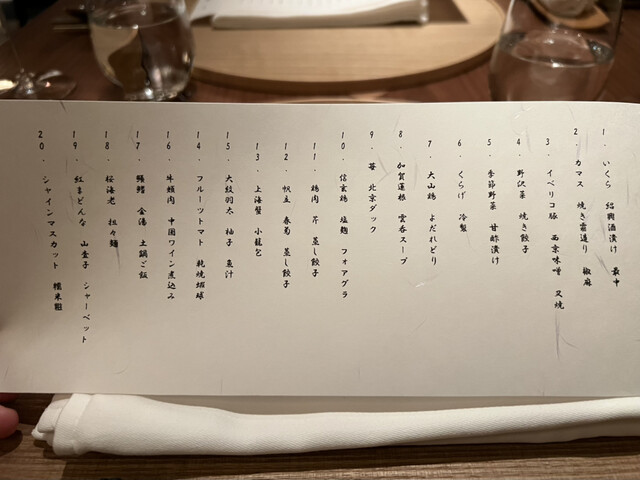 1. いくら 紹興酒漬け 最中
2. カマス 焼き霜造り 椒麻
3. イベリコ豚 西京味噌 叉焼
4. 野沢菜 焼き餃子
5. 季節野菜 甘酢漬け
6. くらげ 冷製
7. 大山鶏 よだれどり
8. 加賀蓮根 雲呑スープ
9. 苺 北京ダック
10. 信玄鶏 塩麹 フォアグラ
11. 鶏肉 芹 蒸し餃子
12. 帆立 春菊 蒸し餃子
13. 上海蟹 小籠包
15. 大紋羽太 柚子 魚汁
14. フルーツトマト 乾焼蝦球
16. 牛頬肉 中国ワイン煮込み
17. 鱶鰭 金湯 土鍋ご飯
18. 桜海老 担々麺
19. 紅まどんな 山査子 シャーベット
20. シャインマスカット 糯米糍